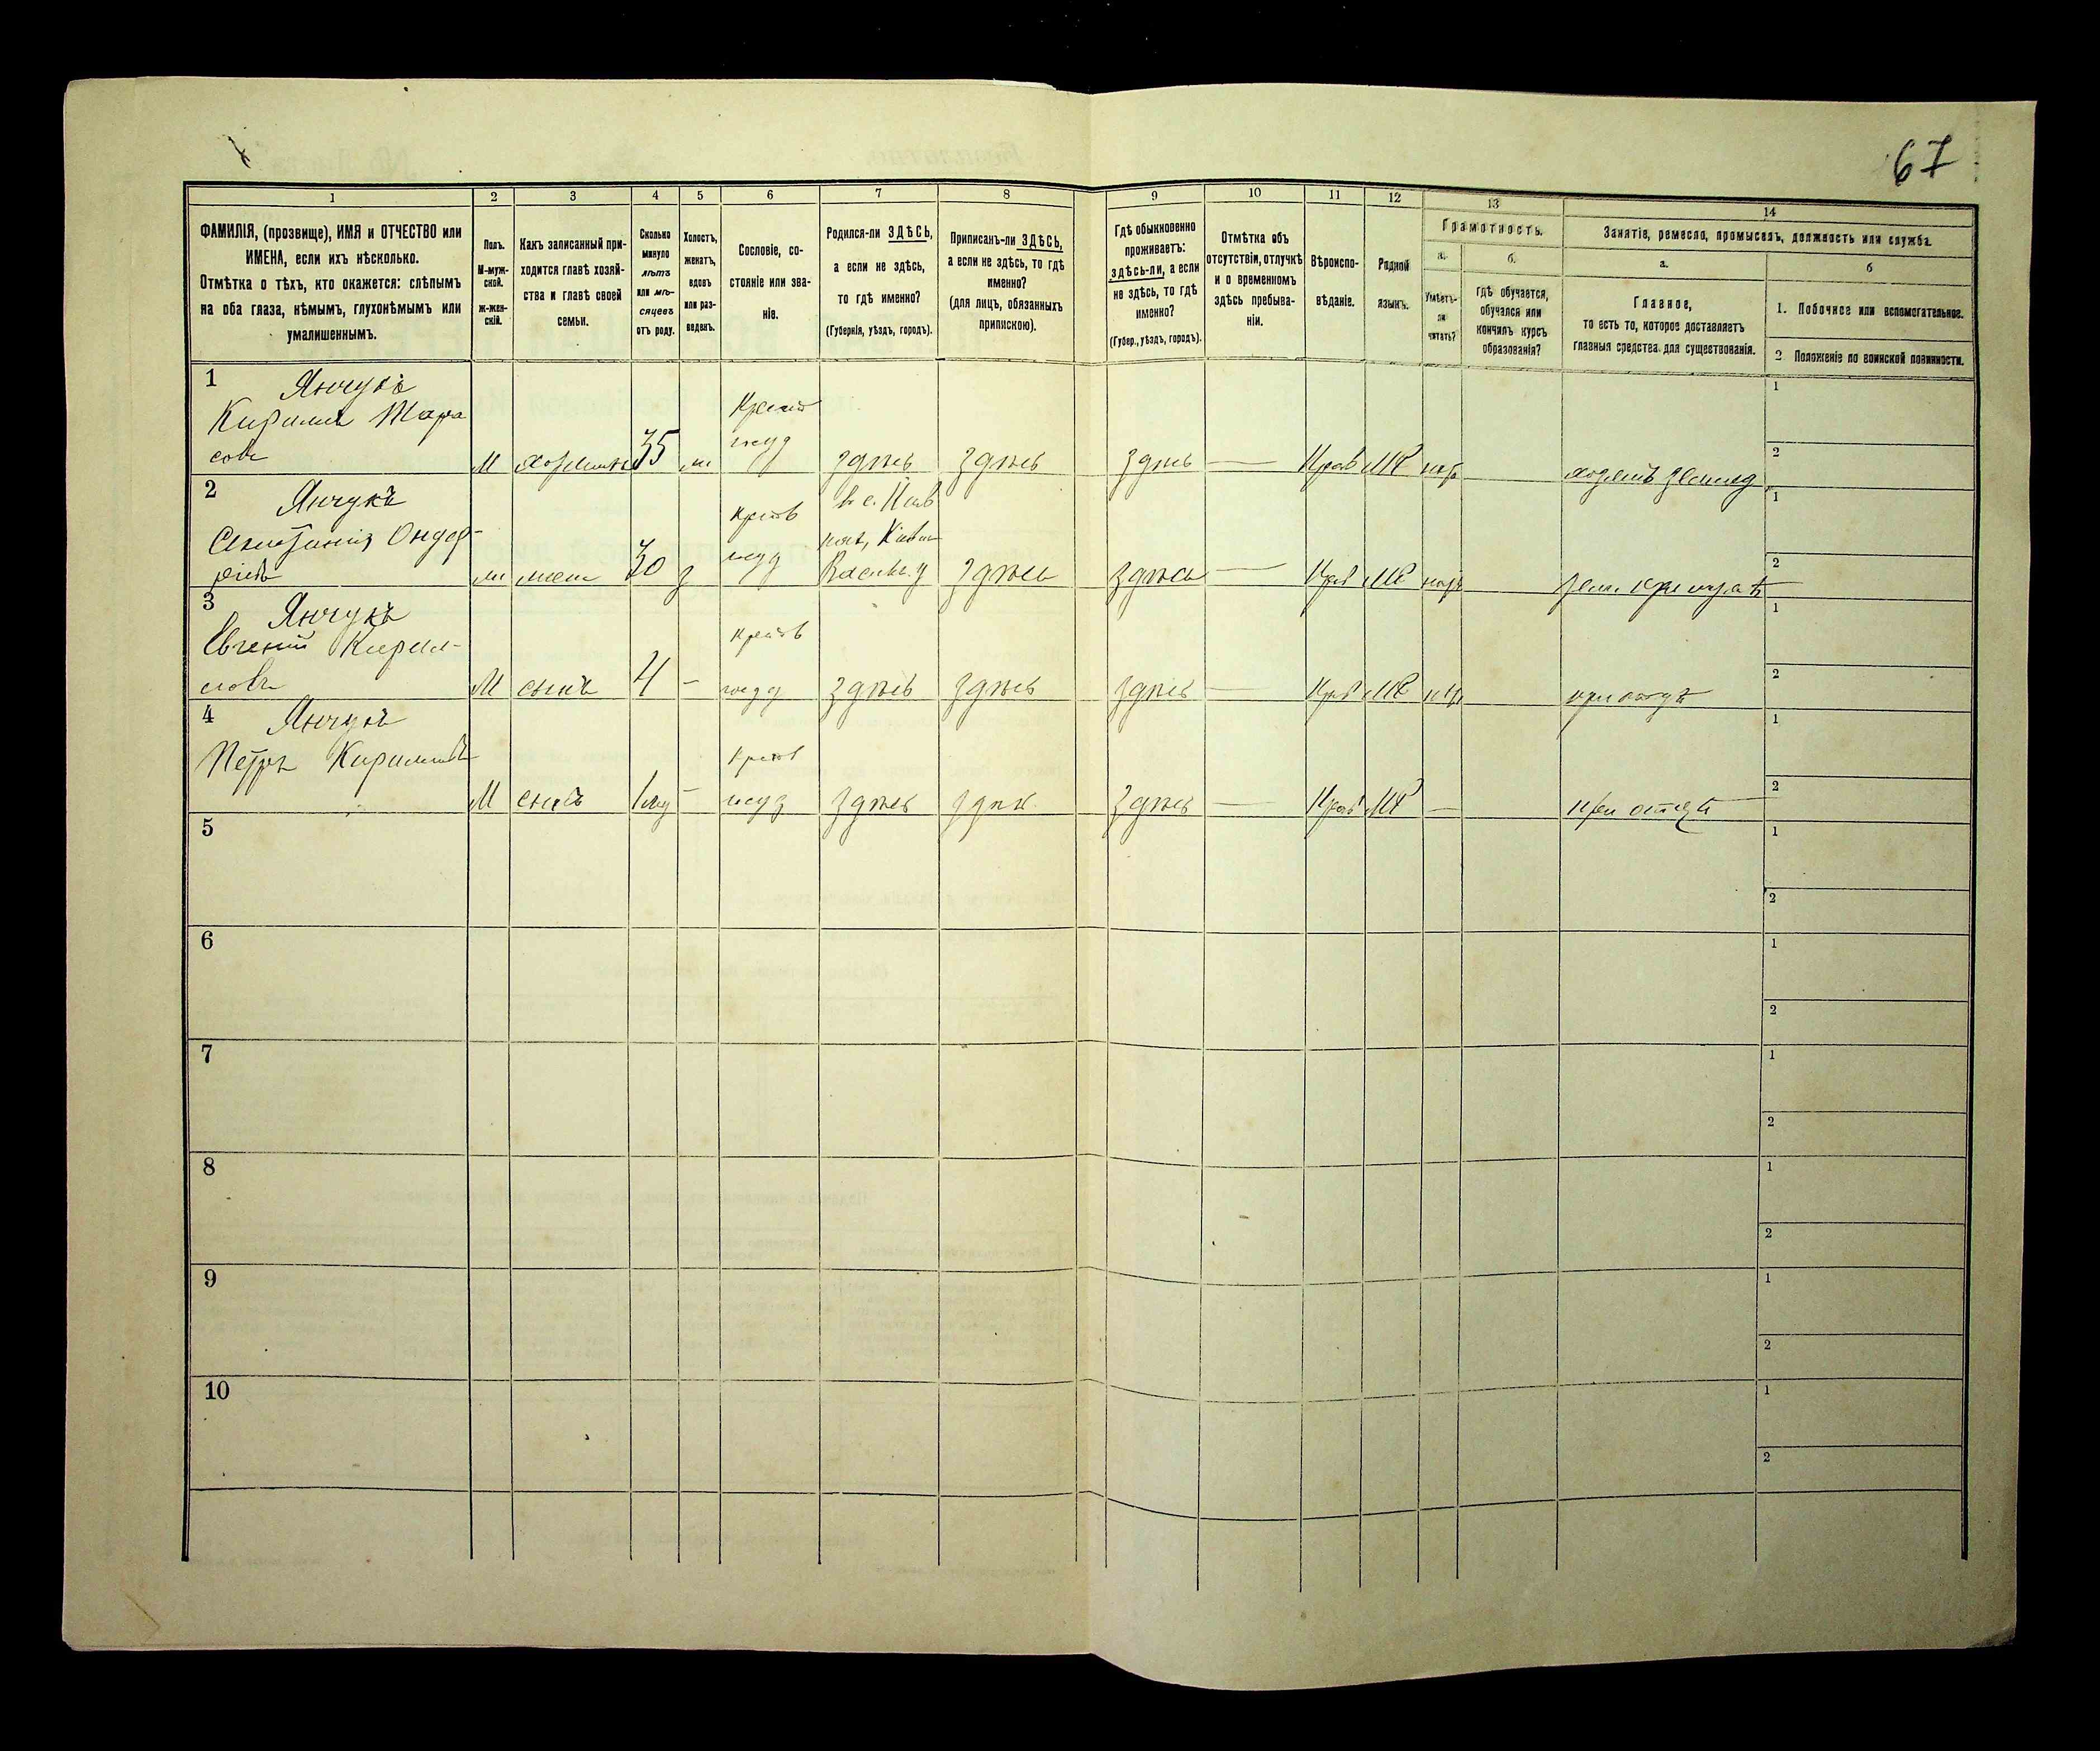 67
1
2
3
4
5
6
7
8
9
10
11
12
13
14
ФАМИЛІЯ, (прозвище), ИМЯ и ОТЧЕСТВО или
ИМЕНА, если ихъ нѣсколько.
Отмѣтка о тѣхъ, кто окажется: слѣпымъ
на оба глаза, нѣмымъ, глухонѣмымъ или
умалишеннымъ.
Полъ.
М-муж-
ской.
ж-жен-
скій.
Какъ записанный при-
ходится главѣ хозяй-
ства и главѣ своей
семьи.
Сколько
минуло
лѣтъ
или мѣ-
сяцевъ
отъ роду.
Холостъ,
женатъ,
вдовъ
или раз-
веденъ.
Сословіе, со-
стояніе или зва-
ніе.
Родился-ли ЗДѢСЬ,
а если не здѣсь,
то гдѣ именно?
(Губернія, уѣздъ, городъ).
Приписанъ-ли ЗДѢСЬ,
а если не здѣсь, то гдѣ
именно?
(для лицъ, обязанныхъ
припискою).
Гдѣ обыкновенно
проживаетъ:
здѣсь-ли, а если
не здѣсь, то гдѣ
именно?
(Губер., уѣздъ, городъ).
Отмѣтка объ
отсутствіи, отлучкѣ
и о временномъ
здѣсь пребыва-
ніи.
Вѣроиспо-
вѣданіе.
Родной
языкъ.
Грамотность.
а.
Умѣетъ-
ли
читать?
б.
Гдѣ обучается,
обучался или
кончилъ курсъ
образованія?
Занятіе, ремесло, промыселъ, должность или служба.
а.
Главное,
то есть то, которое доставляетъ
главныя средства для существованія.
б
1. Побочное или вспомогательное.
2 Положеніе по воинской повинности.
1
Янчукъ
Кирилъ Тара
совъ
М
хозяинъ
35
здѣсь
здѣсь
здѣсь
—
Прав
МР
1
2
2
Янчукъ
30
з
здѣсь
здѣсь
—
Прав
МР
1
2
3
Янчукъ
Евгеній Кирил-
ловъ
М
сынъ
4
-
здѣсь
здѣсь
здѣсь
—
Прав
МР
при отцѣ
1
2
4
Янчукъ
Петръ Кириловъ
М
сынъ
-
здѣсь
здѣсь
здѣсь
—
Прав
МР
—
при отцѣ
1
2
5
1
2
6
1
2
7
1
2
8
1
2
9
1
2
10
1
2